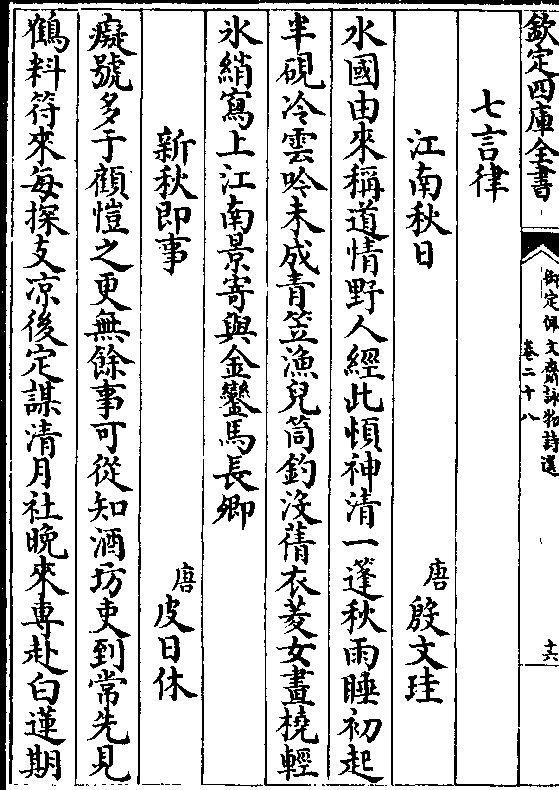 欽定四庫全書
御定佩文齋詠物詩選
卷二十八
十六
七言律
江南秋日
唐殷文珪
水國由來稱道情野人經此頓神清一蓬秋雨睡初起
半硯冷雲吟未成青笠漁兒筒釣沒蒨衣菱女畫橈輕
氷綃寫上江南景寄與金鑾馬長卿
新秋即事
唐皮日休
癡號多于顧愷之更無餘事可從知酒坊吏到常先見
鶴料符來每探支凉後定謀清月社晚來專赴白蓮期